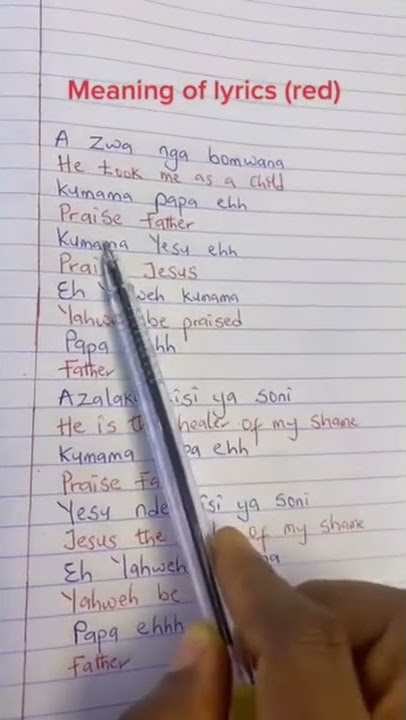 Meaning of lyrics (red)
A zwa nga bomwana
He took me as a child
Kumama papa ehh
Praise Father
Kumama Yesu ehh
Jesus
Eh kumama
be praised
Papa
Father
ya soni
He is healer of my shame
Kumama ehh
Praise
Yesu ya soni
Jesus the of my shame
Eh Yahweh
Yahweh be
Papa ehhh
Father